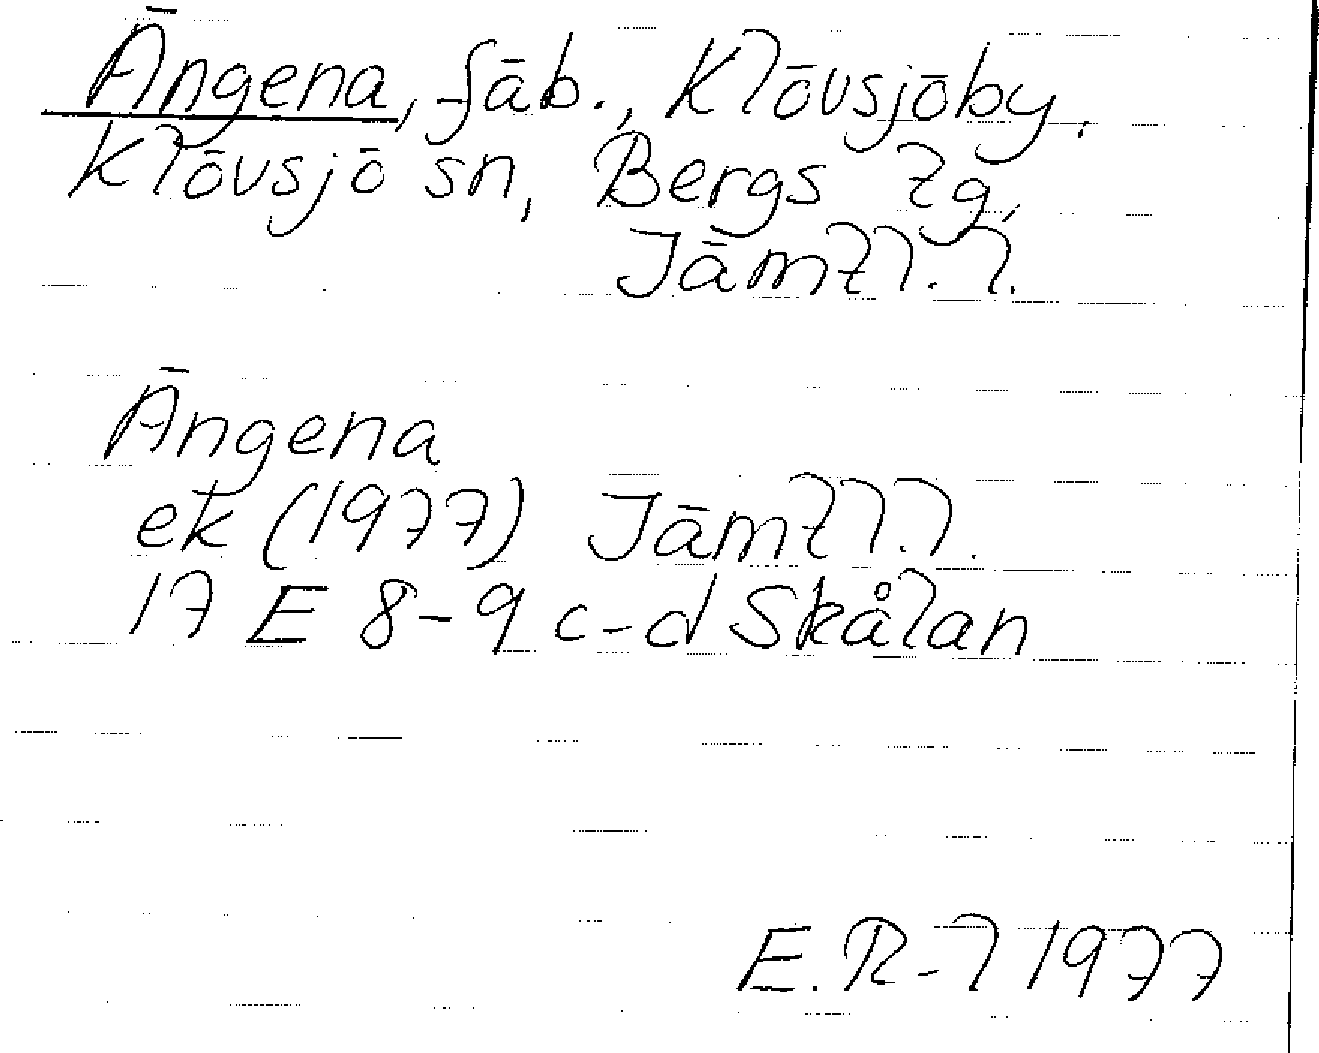 Ängena, fäb., Klövsjöby,
Klövsjö sn, Bergs tg,
Jämtl. l.
Ängena
ek (1977) Jämtl. l.
17 E 8-9 c-d Skålan
E.R-l 1977